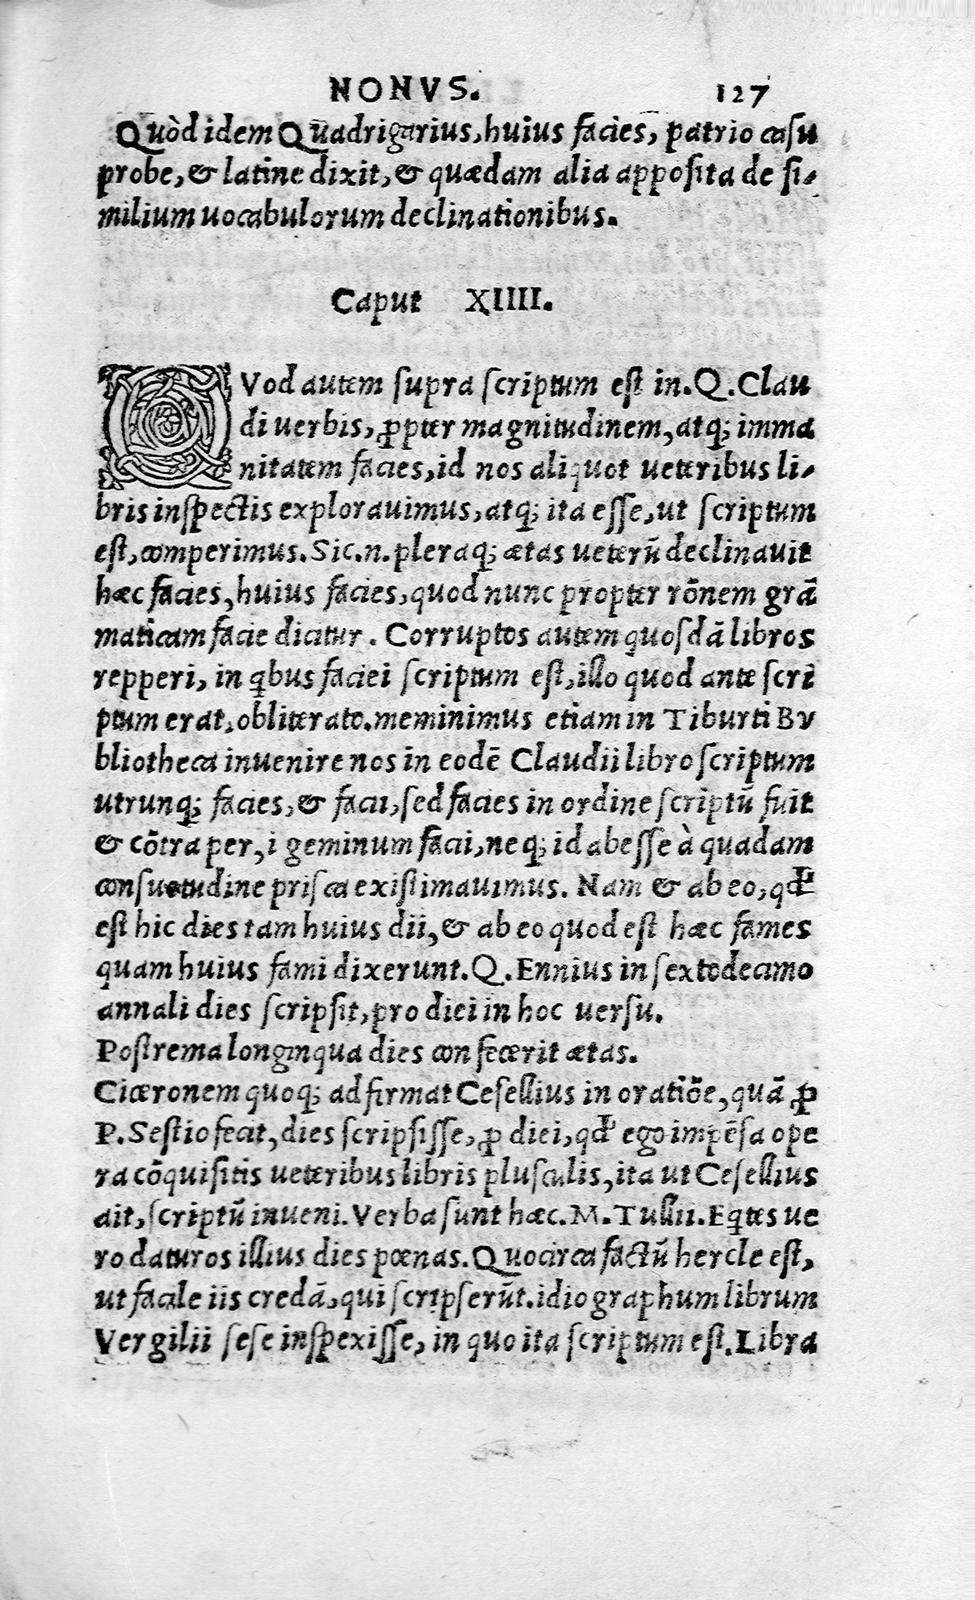 NONVS. 127
Quòd idem Quadrigarius, huius facies, patrio casu
probe, & latine dixit, & quædam alia apposita de si-
milium uocabulorum declinationibus.
Caput XIIII.
QVod autem supra scriptum est in. Q. Clau
di uerbis, ꝓpter magnitudinem, atq; imma
nitatem facies, id nos aliquot ueteribus li-
bris inspectis explorauimus, atq; ita esse, ut scriptum
est, comperimus. Sic. n. pleraq; ætas ueterū declinauit
hæc facies, huius facies, quod nunc propter rōnem grā
maticam facie dicitur. Corruptos autem quosdā libros
repperi, in qbus faciei scriptum est, illo quod ante scri
ptum erat, obliterato. meminimus etiam in Tiburti Bv
bliotheca inuenire nos in eodē Claudii libro scriptum
utrunq; facies, & facii, sed facies in ordine scriptū fuit
& cōtra per, i geminum faci, neq; id abesse à quadam
consuetudine prisca existimauimus. Nam & ab eo, qđ
est hic dies tam huius dii, & ab eo quod est hæc fames
quam huius fami dixerunt. Q. Ennius in sextodecimo
annali dies scripsit, pro diei in hoc uersu.
Postrema longinqua dies confecerit ætas.
Ciceronem quoq; adfirmat Cesellius in oratiōe, quā ꝓ
P. Sestio fecit, dies scripsisse, ꝓ diei, qđ ego impēsa ope
ra cōquisitis ueteribus libris plusculis, ita ut Cesellius
ait, scriptū inueni. Verba sunt hæc. M. Tullii. Eqtes ue
ro daturos illius dies pœnas. Quocirca factū hercle est,
ut facile iis credā, qui scripserūt. idiographum librum
Vergilii sese inspexisse, in quo ita scriptum est. Libra